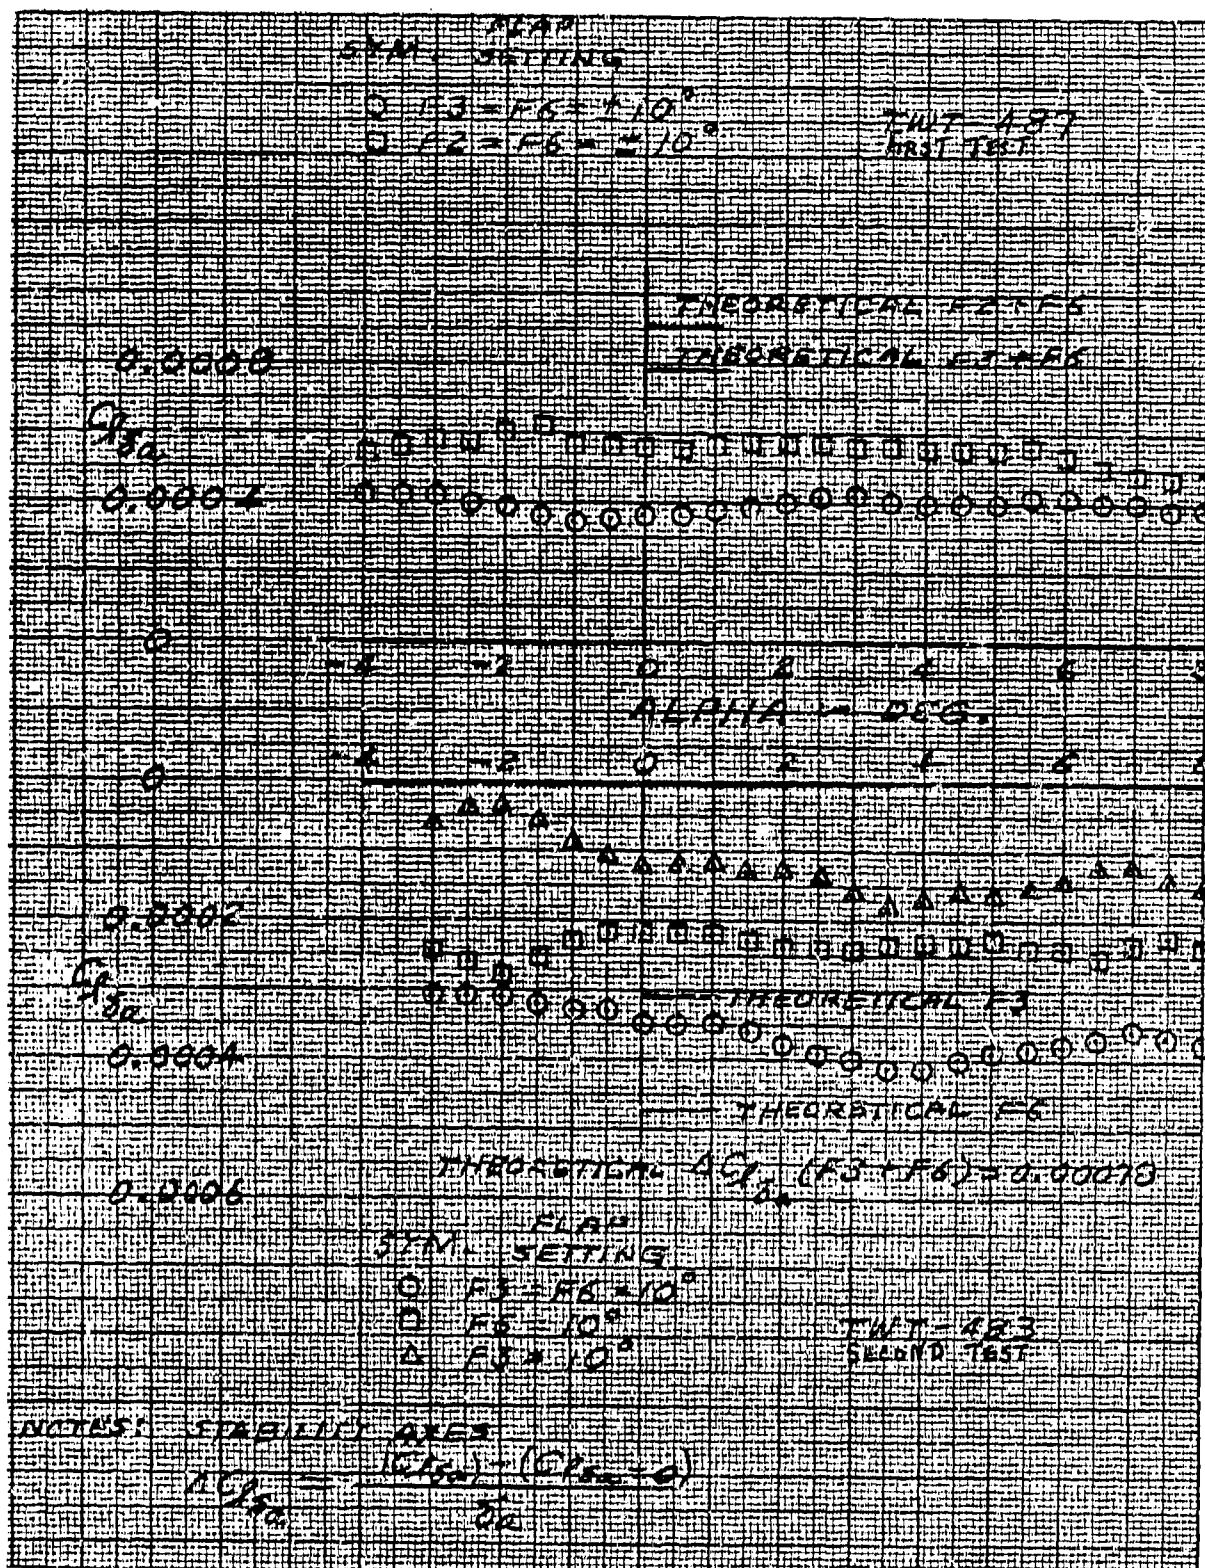 FLAP
SYM. SETTING
○ F3 = F6 = ±10°
□ F2 = F6 = ±10°
TWT-487
FIRST TEST
THEORETICAL F2+F6
THEORETICAL F3+F6
0.0008
Clδa
0.0004
0
-4 -2 0 2 4 6
ALPHA ~ DEG.
-4 -2 0 2 4 6
0
0.0002
Clδa
THEORETICAL F3
0.0004
THEORETICAL F6
THEORETICAL ΔClδa (F3+F6)=0.00078
0.0006
FLAP
SYM. SETTING
○ F3 = F6 = 10°
□ F6 = 10°
△ F3 = 10°
TWT-483
SECOND TEST
NOTES: STABILITY AXES
ΔClδa = (Clδa) - (Clδa=0)
δa